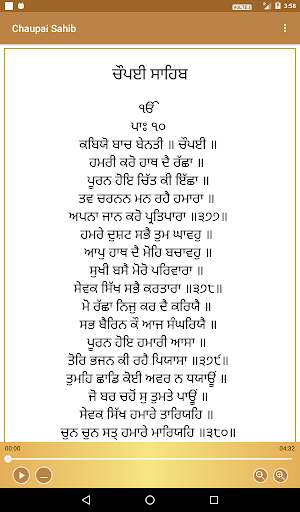 VoLTE 2 3:58
Chaupai Sahib
ਚੌਪਈ ਸਾਹਿਬ
ੴ
ਪਾਃ ੧੦
ਕਬਿਯੋ ਬਾਚ ਬੇਨਤੀ ॥ ਚੌਪਈ ॥
ਹਮਰੀ ਕਰੋ ਹਾਥ ਦੈ ਰੱਛਾ ॥
ਪੂਰਨ ਹੋਇ ਚਿੱਤ ਕੀ ਇੱਛਾ ॥
ਤਵ ਚਰਨਨ ਮਨ ਰਹੈ ਹਮਾਰਾ ॥
ਅਪਨਾ ਜਾਨ ਕਰੋ ਪ੍ਰਤਿਪਾਰਾ ॥੩੭੭॥
ਹਮਰੇ ਦੁਸ਼ਟ ਸਭੈ ਤੁਮ ਘਾਵਹੁ ॥
ਆਪੁ ਹਾਥ ਦੈ ਮੋਹਿ ਬਚਾਵਹੁ ॥
ਸੁਖੀ ਬਸੈ ਮੋਰੋ ਪਰਿਵਾਰਾ ॥
ਸੇਵਕ ਸਿੱਖ ਸਭੈ ਕਰਤਾਰਾ ॥੩੭੮॥
ਮੋ ਰੱਛਾ ਨਿਜੁ ਕਰ ਦੈ ਕਰਿਯੈ ॥
ਸਭ ਬੈਰਿਨ ਕੌ ਆਜ ਸੰਘਰਿਯੈ ॥
ਪੂਰਨ ਹੋਇ ਹਮਾਰੀ ਆਸਾ ॥
ਤੋਰਿ ਭਜਨ ਕੀ ਰਹੈ ਪਿਯਾਸਾ ॥੩੭੯॥
ਤੁਮਹਿ ਛਾਡਿ ਕੋਈ ਅਵਰ ਨ ਧਯਾਊਂ ॥
ਜੋ ਬਰ ਚਹੋਂ ਸੁ ਤੁਮਤੇ ਪਾਊਂ ॥
ਸੇਵਕ ਸਿੱਖ ਹਮਾਰੇ ਤਾਰਿਯਹਿ ॥
ਚੁਨ ਚੁਨ ਸਤ੍ਰੁ ਹਮਾਰੇ ਮਾਰਿਯਹਿ ॥੩੮੦॥
00:00 04:32